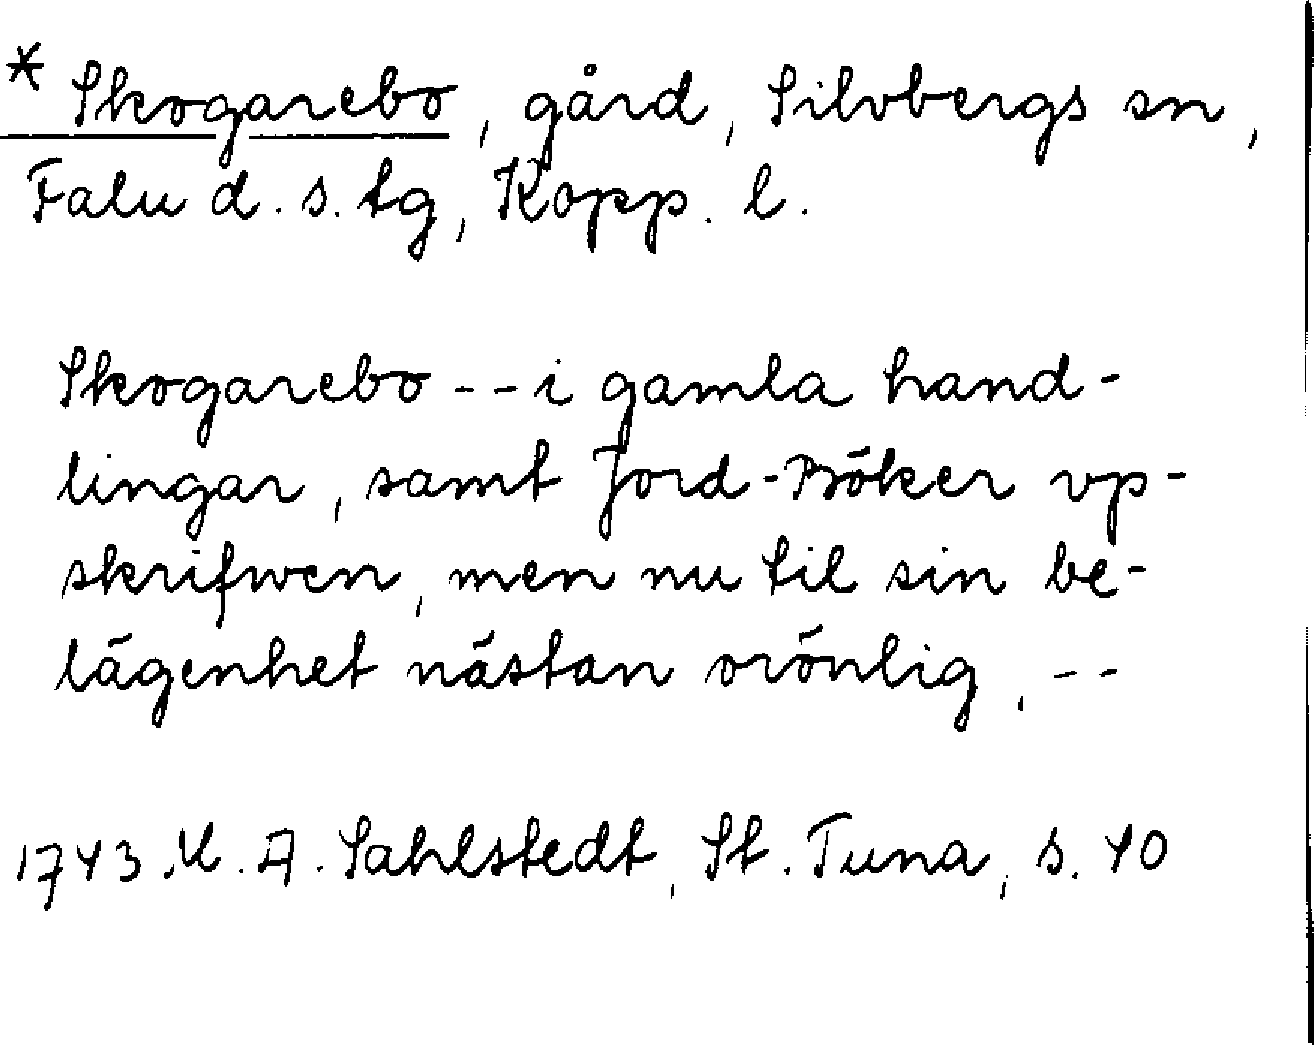 * Skogarebo, gård, Silvbergs sn,
Falu d. s. tg, Kopp. l.
Skogarebo -- i gamla hand-
lingar, samt Jord-Böker vp-
skrifwen, men nu til sin be-
lägenhet nästan orönlig, --
1743. A. Sahlstedt, St. Tuna, s. 40